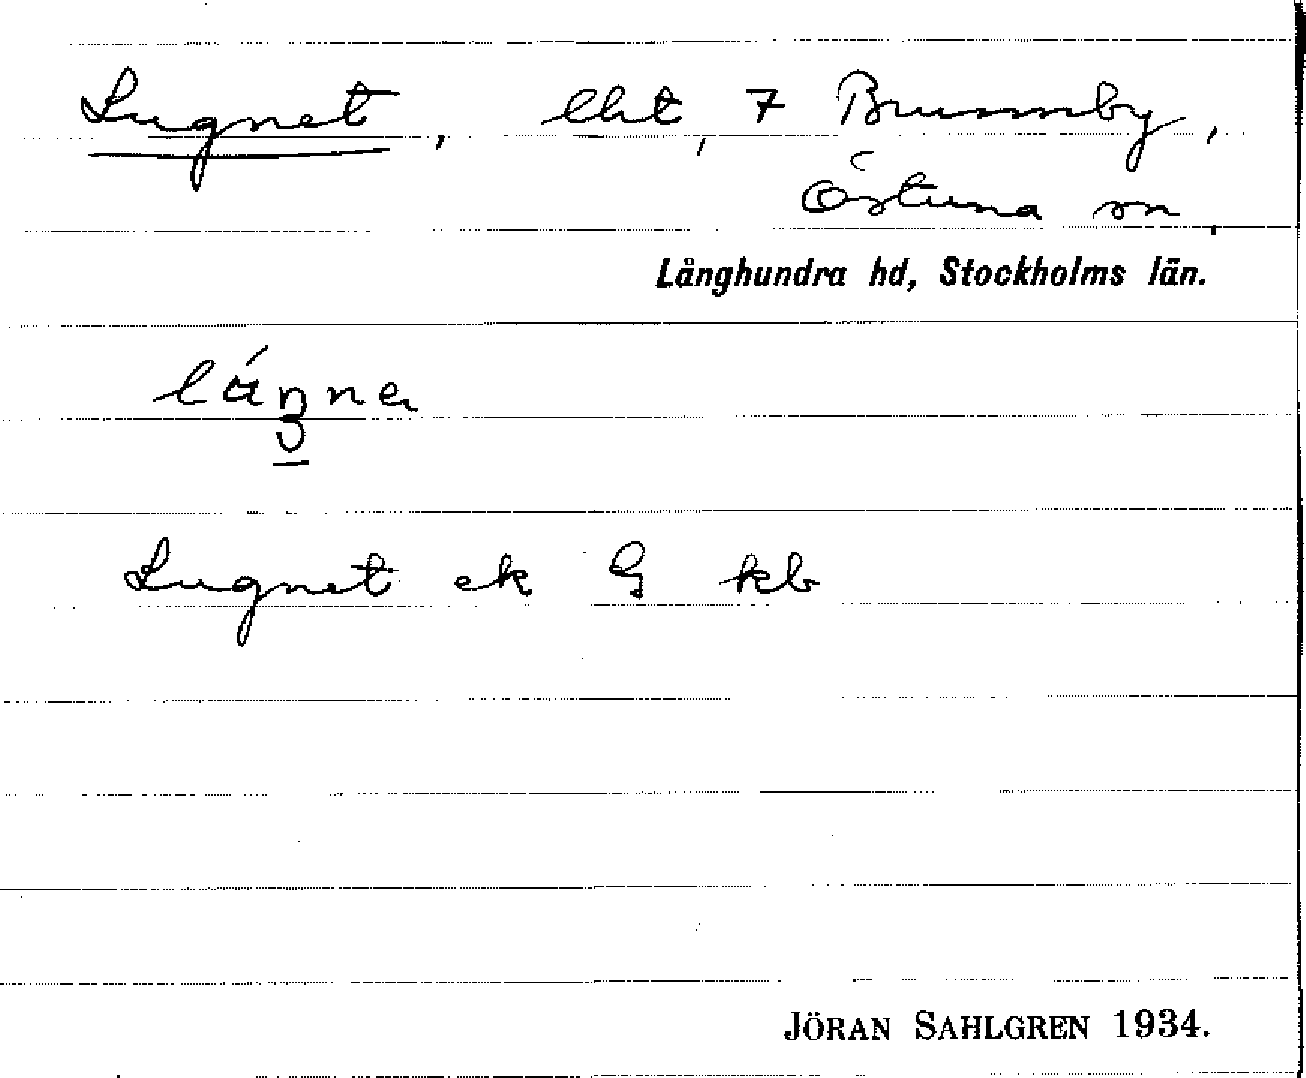 Lugnet, lht, 7 Brunnby,
Östuna sn,
Långhundra hd, Stockholms län.
Lugnet ek G kb
JÖRAN SAHLGREN 1934.